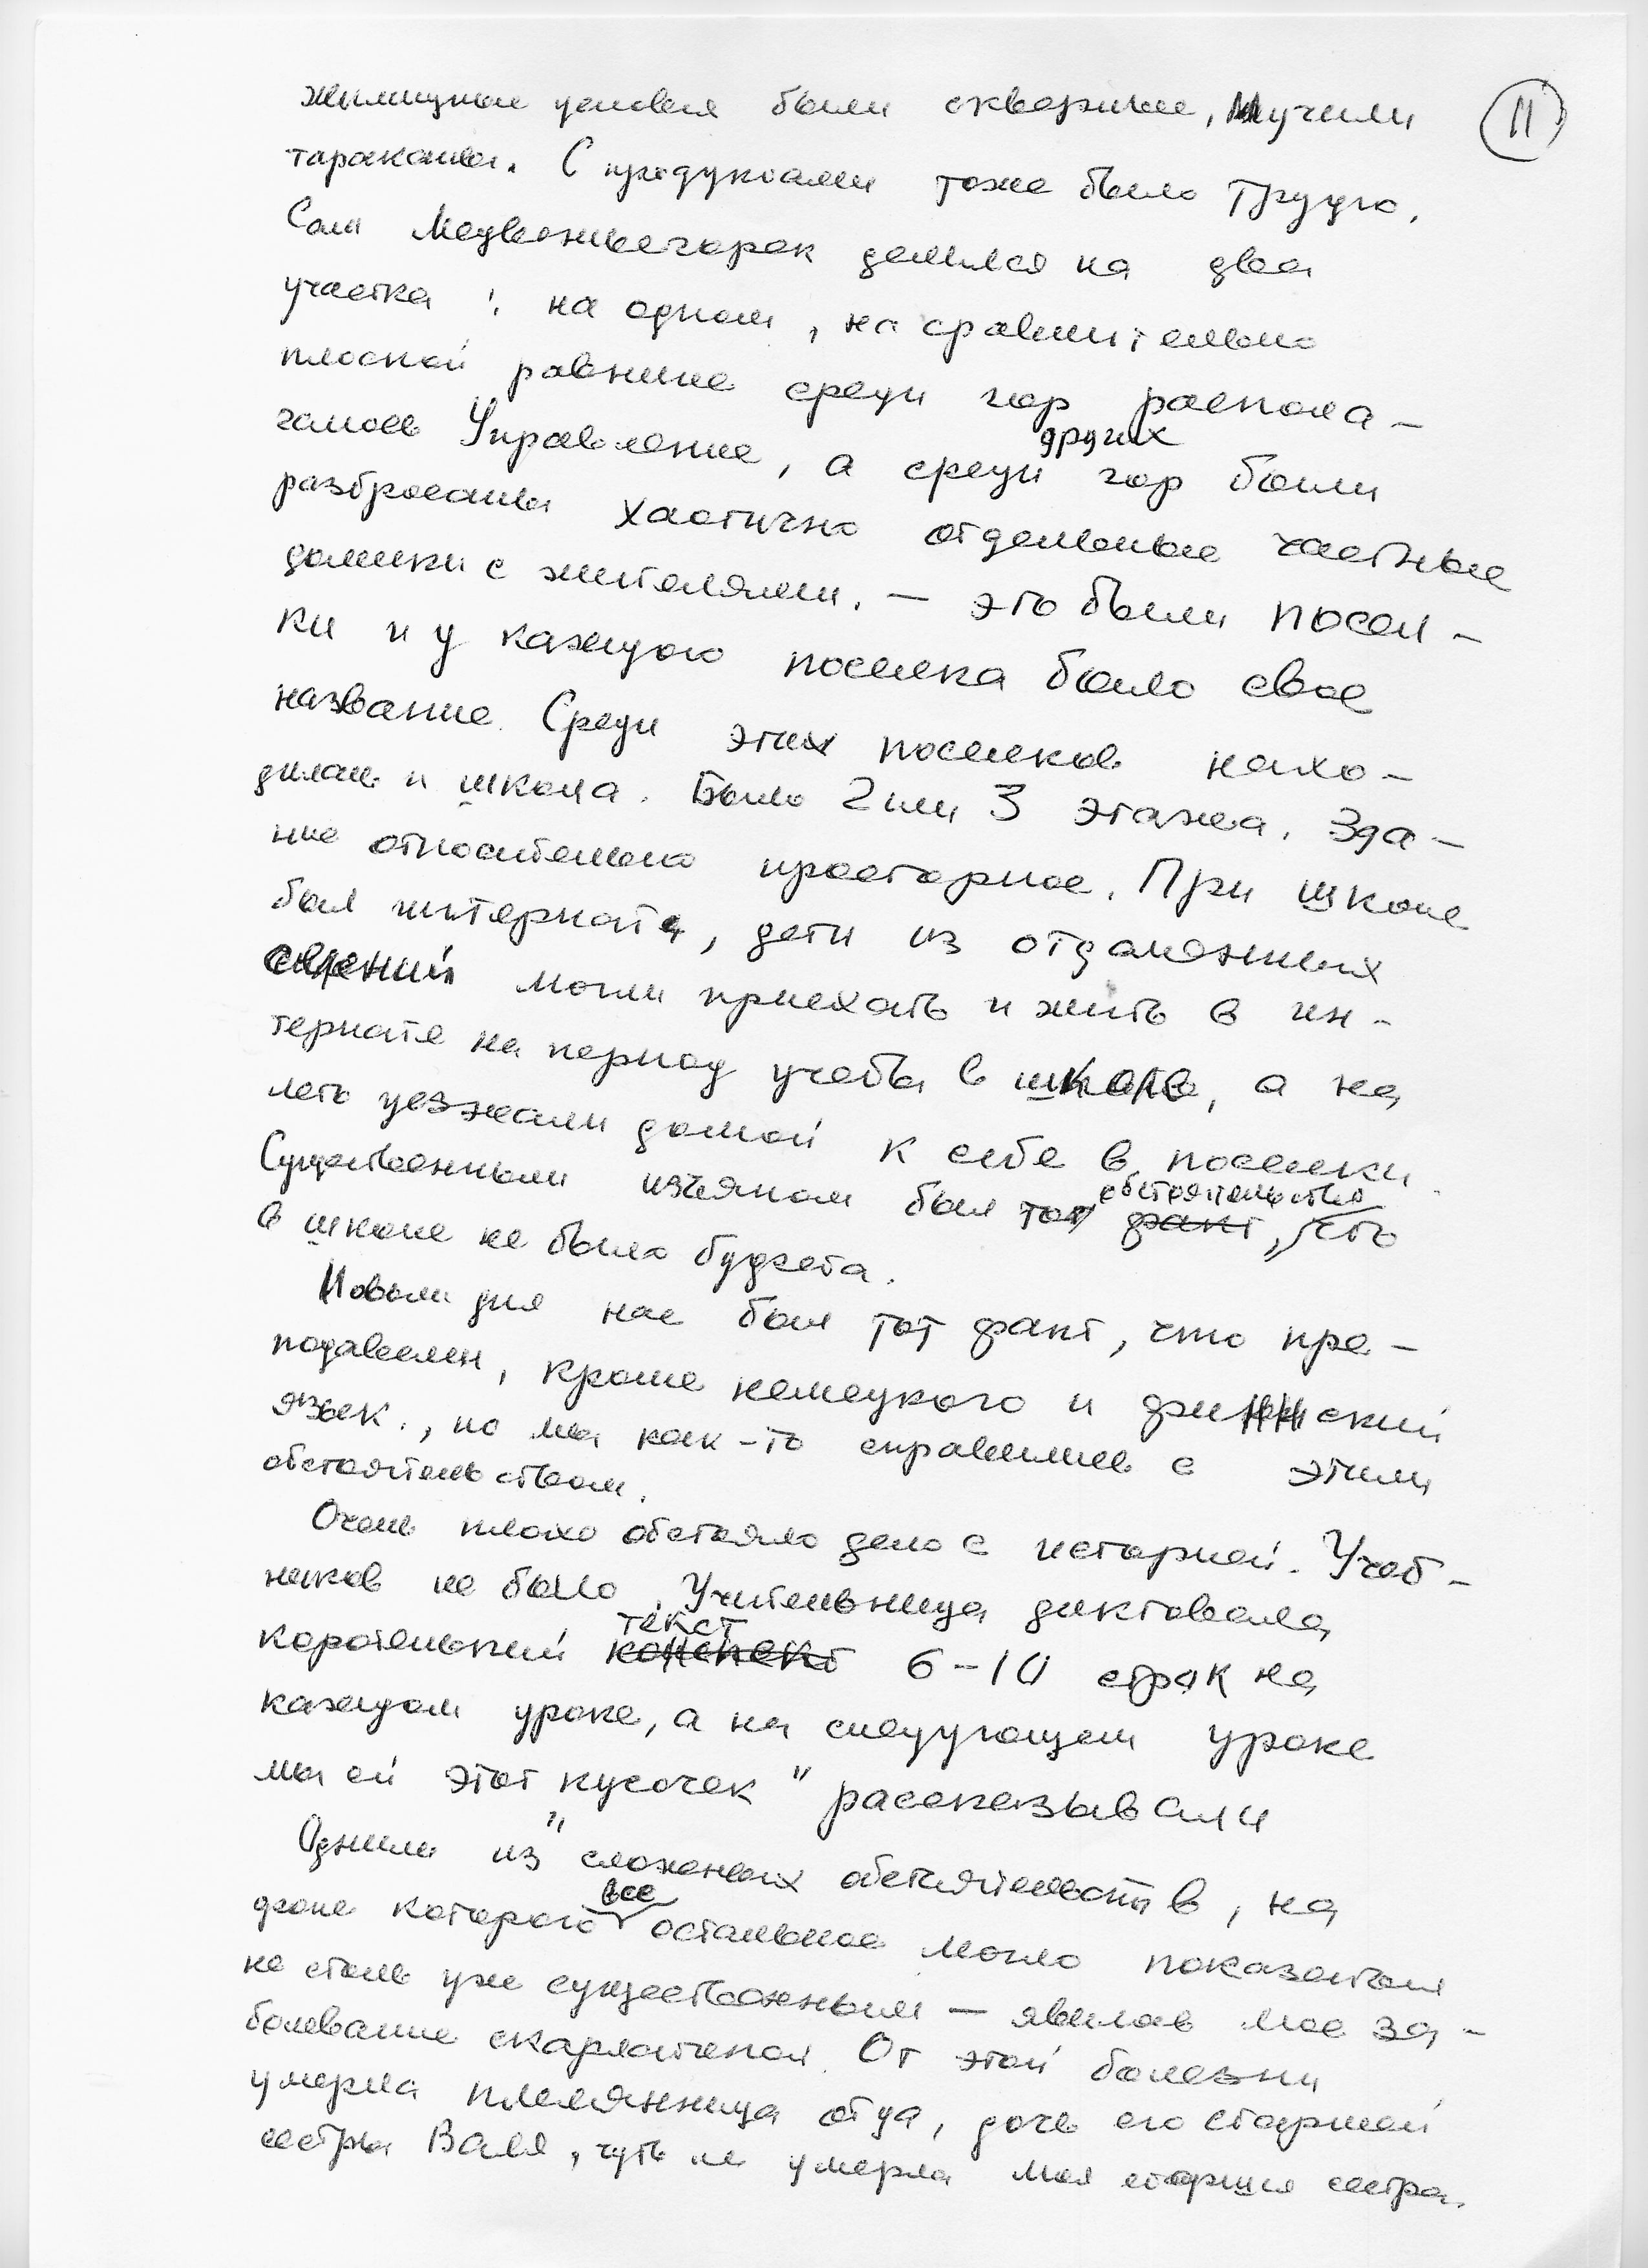 жилищные условия были скверные, Мучили
тараканы. С продуктами тоже было трудно.
11
Сам Медвежьегорск делился на два
участка: на одном, на сравнительно
плоской равнине среди гор распола-
галось Управление, а среди других гор были
разбросаны хаотично отдельные частные
домики с жителями. — это были посел-
ки и у каждого поселка было свое
название. Среди этих поселков нахо-
дилась и школа. Было 2 или 3 этажа. Зда-
ние относительно просторное. При школе
был интернат, дети из отдаленных
могли приехать и жить в ин-
тернате на период учебы в школе, а на
лето уезжали домой к себе в поселки.
Существенным изъяном был то обстоятельство факт, что
в школе не было буфета.
Новым для нас был тот факт, что пре-
подавали, кроме немецкого и финский
язык., но мы как-то справились с этим
обстоятельством.
Очень плохо обстояло дело с историей. Учеб-
ников не было. Учительница диктовала
коротенький текст конспект 6-10 строк на
каждом уроке, а на следующем уроке
мы ей этот кусочек "рассказывали"
Одним из сложных обстоятельств, на
фоне которого все остальное могло показаться
не столь уже существенным — явилось мое за-
болевание скарлатиной. От этой болезни
умерла племянница отца, дочь его старшей
сестры Валя, чуть не умерла моя старшая сестра.